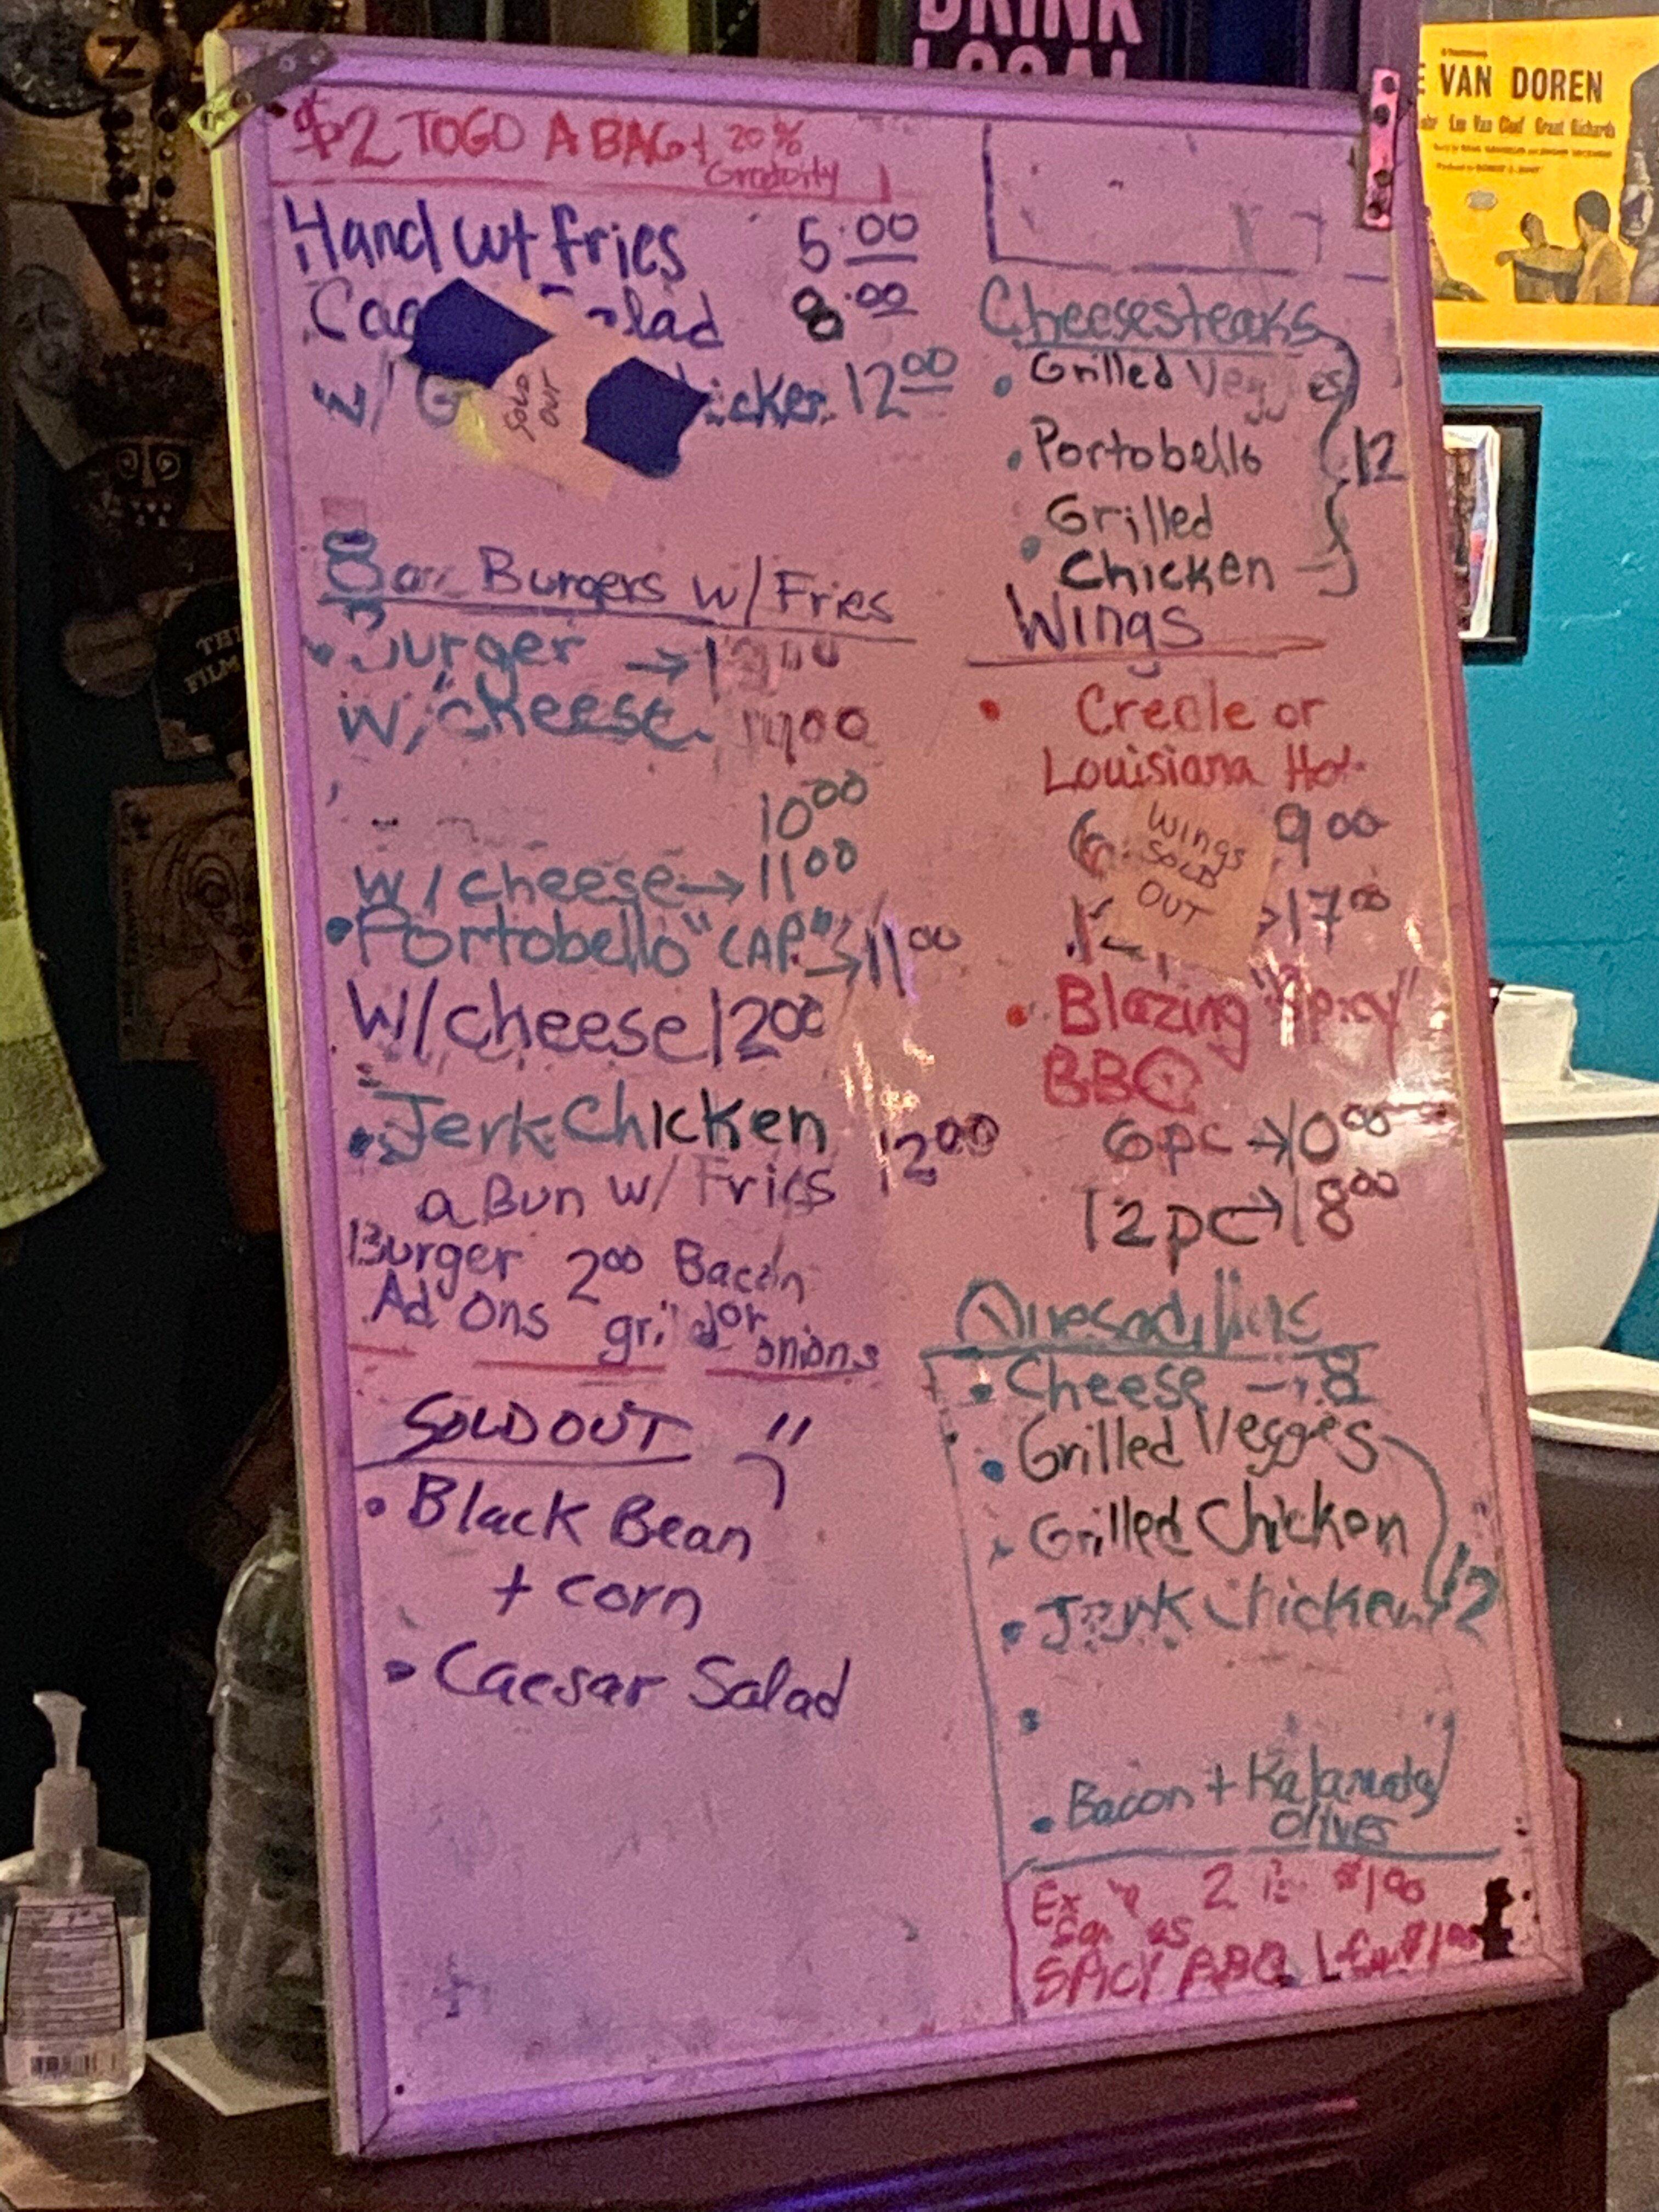 DRINK
LOCAL
$2 TOGO A BAG + 20%
Hand cut fries 5.00
Salad 8.00
w/ 12.00
SOLD
OUT
8oz Burgers w/ Fries
• Burger →
w/ cheese
10.00
w/ cheese → 11.00
• Portobello "CAP" → 11.00
W/cheese 12.00
• Jerk Chicken 12.00
a Bun w/ Fries
Burger 2.00 Bacon
Ad Ons or
onions
SOLD OUT
• Black Bean
+ corn
• Caesar Salad
Cheesesteaks
• Grilled Veggies
• Portobello 12
• Grilled
Chicken
Wings
• Creole or
Louisiana Hot
6 9.00
WINGS
SOLD
OUT
→ 17.00
• Blazing "Spicy"
BBQ
6pc → 10.00
12pc → 18.00
Quesadillas
• Cheese → 8
• Grilled Veggies
• Grilled Chicken
• Jerk Chicken 12
• Bacon + Kalamata
olives
2 $1.00
SPICY BBQ
VAN DOREN
Lee Van Cleef Grant Richards